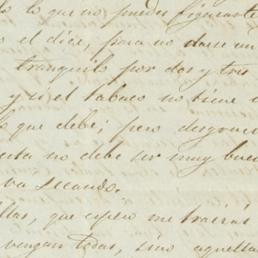 lo que no puedes figurarte
el dice, para no darse un
tranquilo por dos y tres
y si el tabaco no tiene
que debe; pero desgraci
cta no debe ser muy bue
va secando.
llas, que espero me traerás
vengan todas, sino aquellas